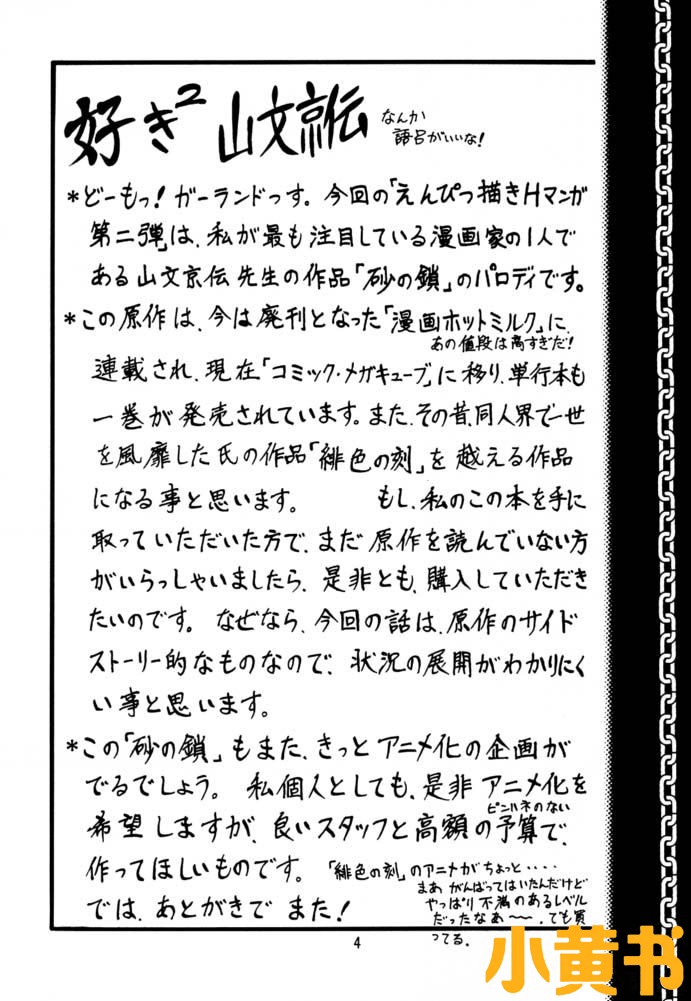 好き² 山文京伝
なんか
語呂がいいな!
*どーもっ!ガーランドっす。今回の「えんぴつ描きHマンガ
第二弾」は、私が最も注目している漫画家の1人で
ある山文京伝先生の作品「砂の鎖」のパロディです。
*この原作は、今は廃刊となった「漫画ホットミルク」に、
あの値段は高すぎだ!
連載され、現在「コミック・メガキューブ」に移り、単行本も
一巻が発売されています。また、その昔、同人界で一世
を風靡した氏の作品「緋色の刻」を越える作品
になる事と思います。 もし、私のこの本を手に
取っていただいた方で、まだ原作を読んでいない方
がいらっしゃいましたら、是非とも、購入していただき
たいのです。なぜなら、今回の話は、原作のサイド
ストーリー的なものなので、状況の展開がわかりにく
い事と思います。
*この「砂の鎖」もまた、きっとアニメ化の企画が
でるでしょう。私個人としても、是非アニメ化を
ピンハネのない
希望しますが、良いスタッフと高額の予算で、
作ってほしいものです。「緋色の刻」のアニメがちょっと‥‥
まあがんばってはいたんだけど
やっぱり不満のあるレベル
だったなあ〜〜、でも買
ってる。
では、あとがきでまた!
4
小黄书